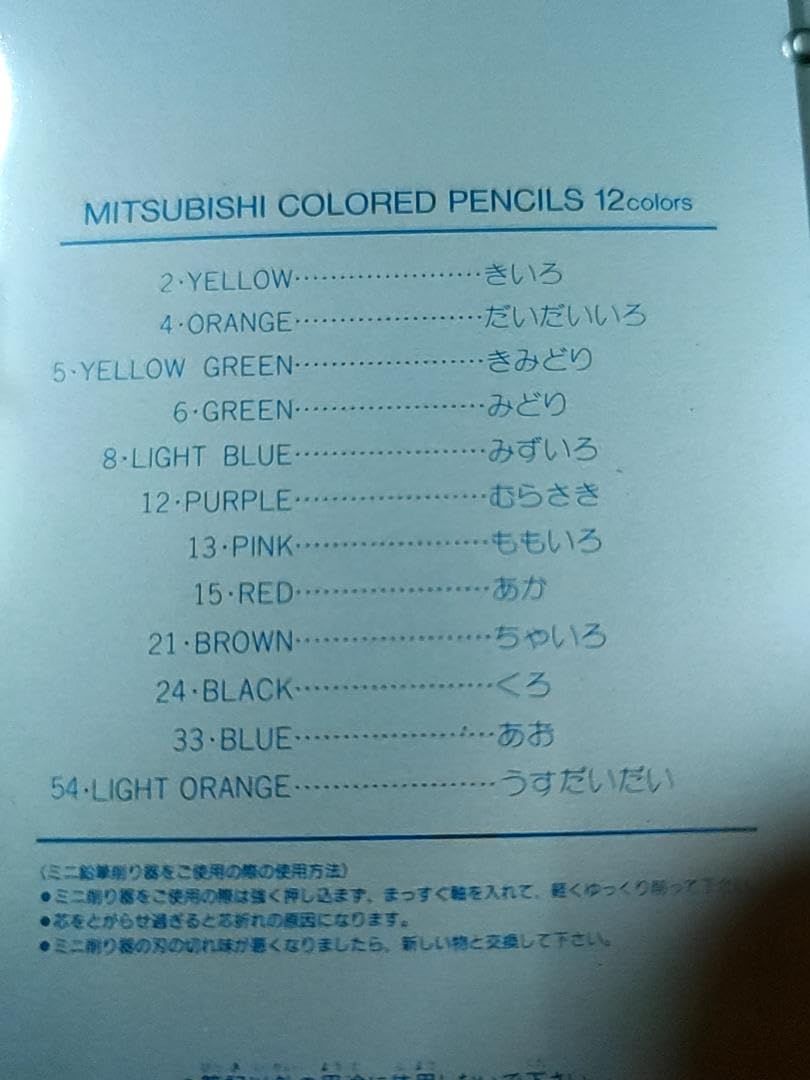 MITSUBISHI COLORED PENCILS 12colors
2·YELLOW······················きいろ
4·ORANGE······················だいだいいろ
5·YELLOW GREEN······················きみどり
6·GREEN······················みどり
8·LIGHT BLUE······················みずいろ
12·PURPLE······················むらさき
13·PINK······················ももいろ
15·RED······················あか
21·BROWN······················ちゃいろ
24·BLACK······················くろ
33·BLUE······················あお
54·LIGHT ORANGE······················うすだいだい
〈ミニ鉛筆削り器をご使用の際の使用方法〉
●ミニ削り器をご使用の際は強く押し込まず、まっすぐ軸を入れて、軽くゆっくり削って下さい
●芯をとがらせ過ぎると芯折れの原因になります。
●ミニ削り器の刃の切れ味が悪くなりましたら、新しい物と交換して下さい。